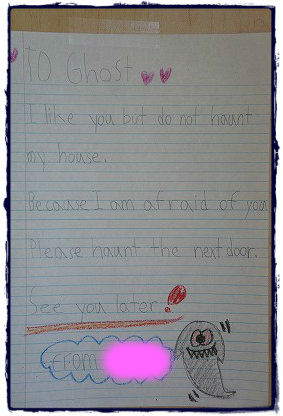 TO Ghost
I like you but do not haunt
my house.
Because I am afraid of you
Please haunt the next door.
See you later!
FROM